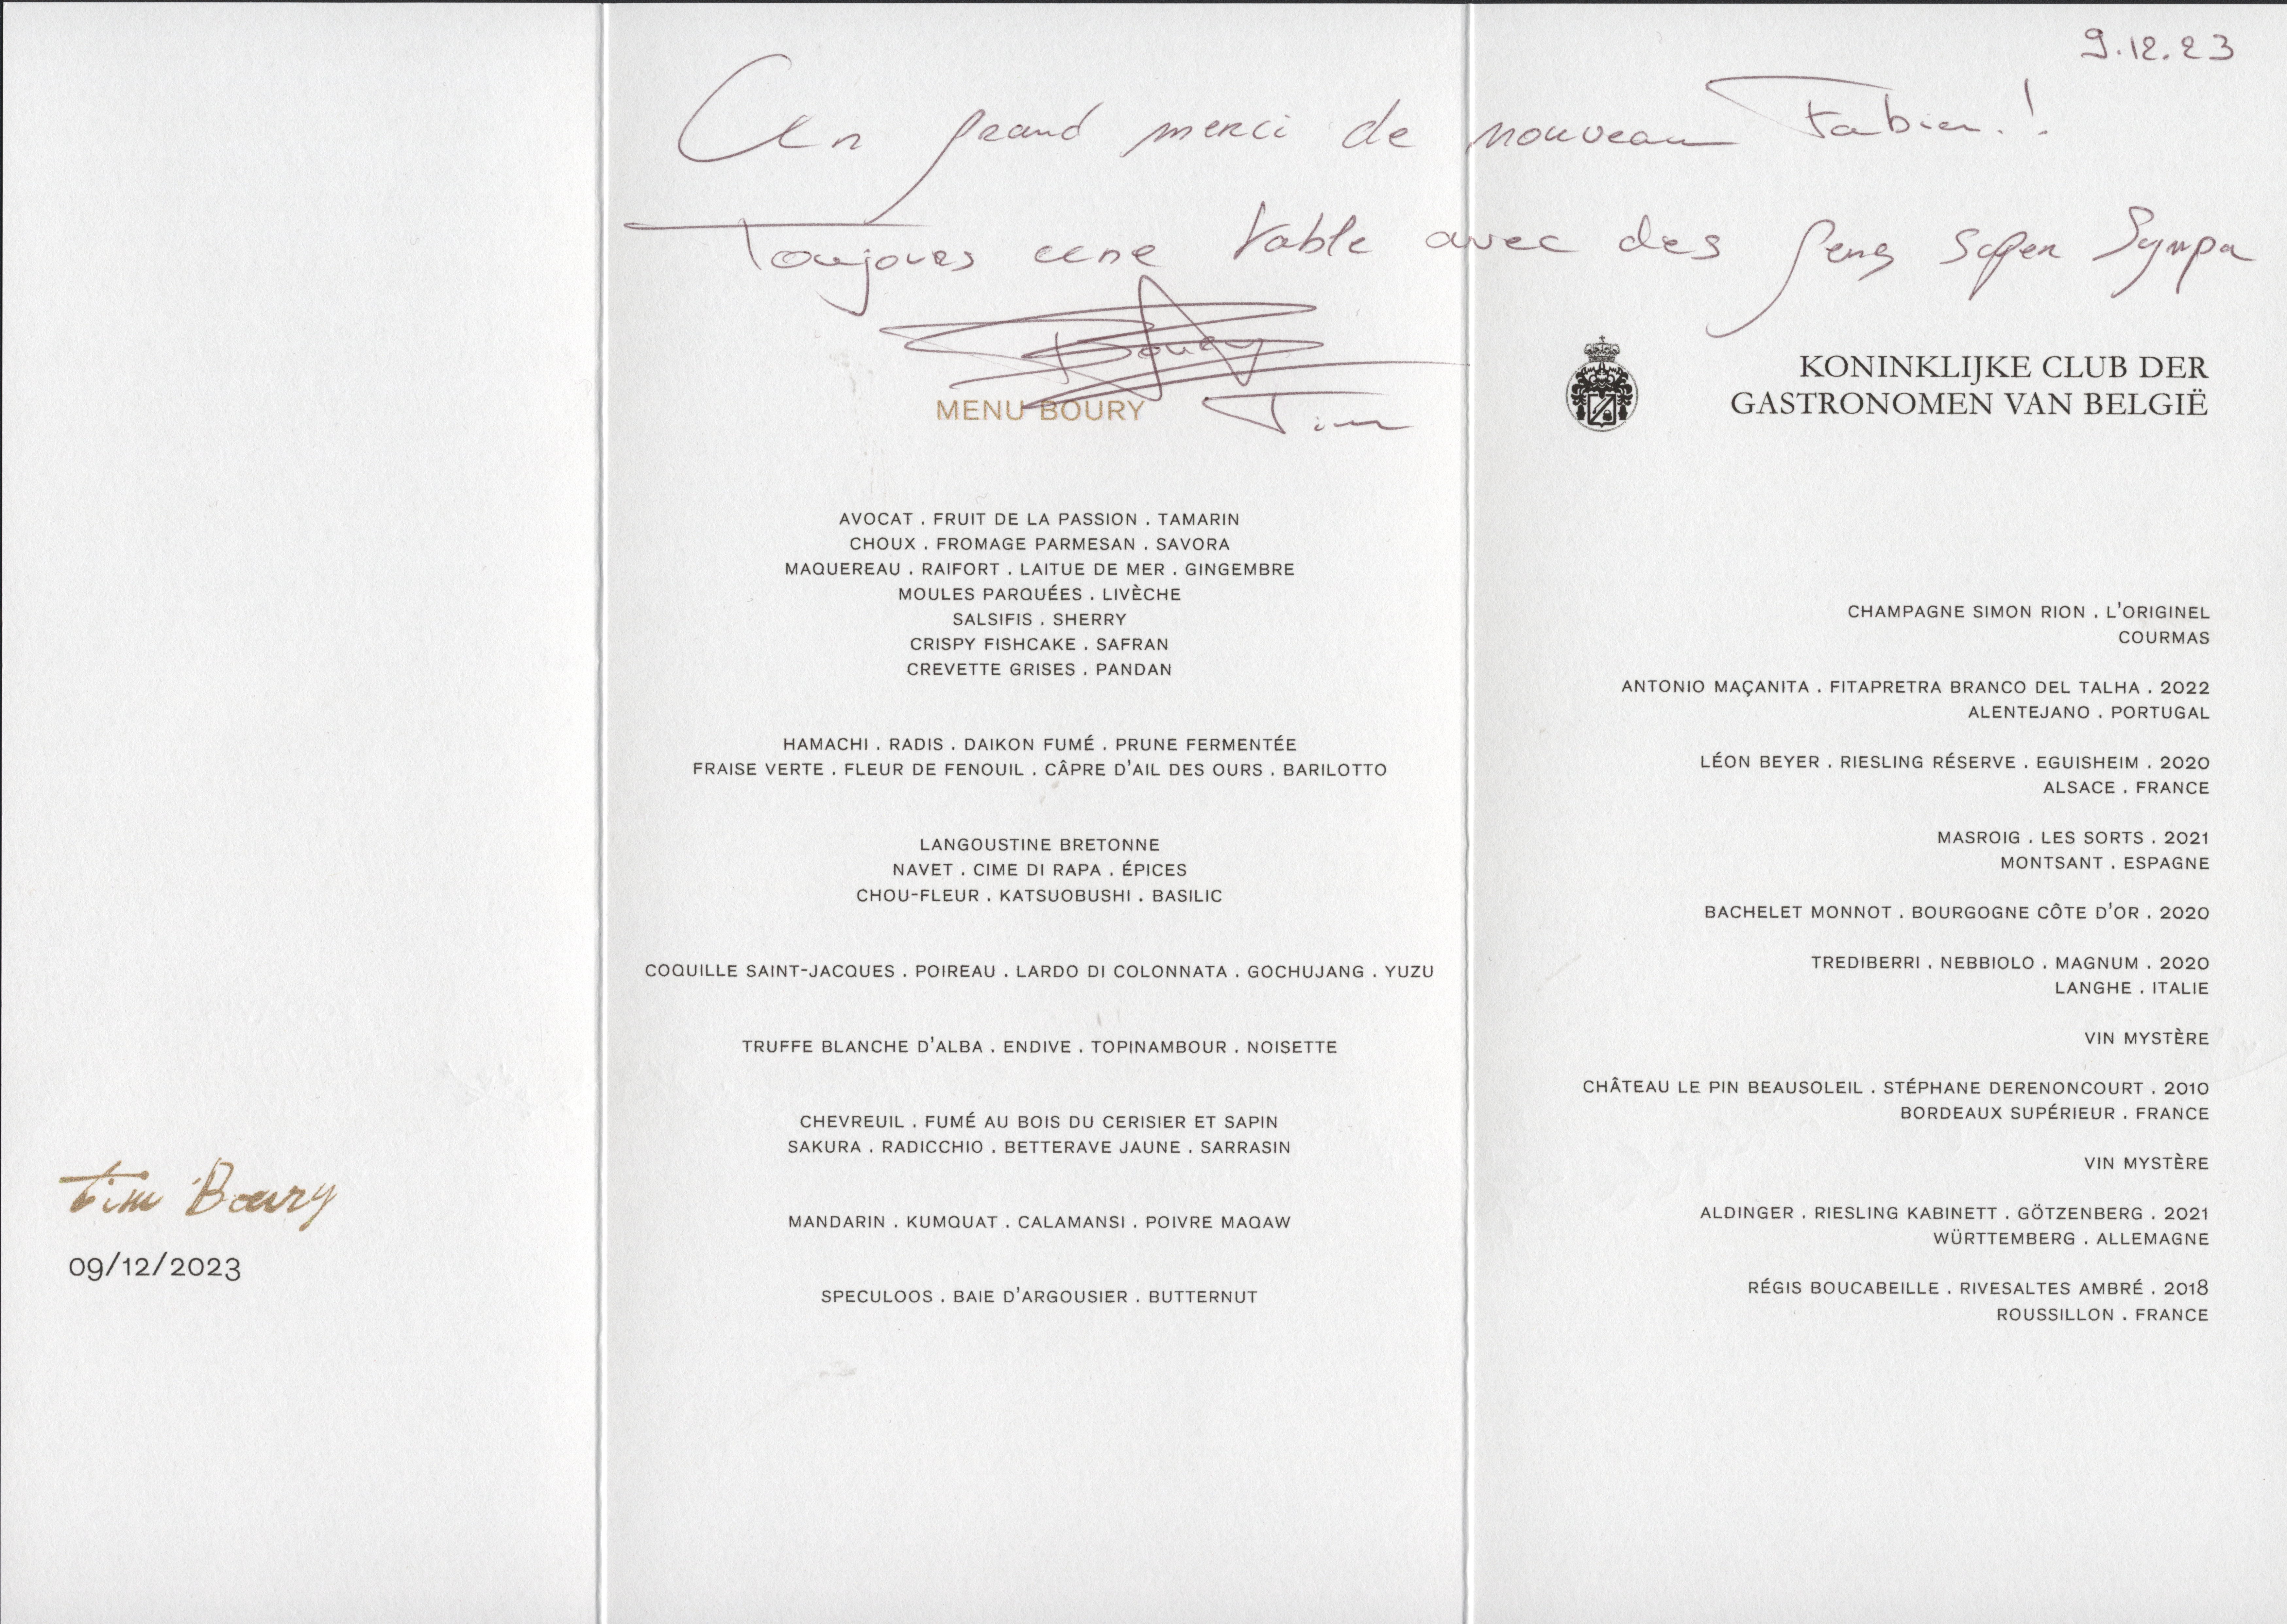 9.12.23
Un grand merci de nouveau Fabien.!
Toujours une table avec des gens super sympa
Boury
Tim
MENU BOURY
AVOCAT . FRUIT DE LA PASSION . TAMARIN
CHOUX . FROMAGE PARMESAN . SAVORA
MAQUEREAU . RAIFORT . LAITUE DE MER . GINGEMBRE
MOULES PARQUÉES . LIVÈCHE
SALSIFIS . SHERRY
CRISPY FISHCAKE . SAFRAN
CREVETTE GRISES . PANDAN
HAMACHI . RADIS . DAIKON FUMÉ . PRUNE FERMENTÉE
FRAISE VERTE . FLEUR DE FENOUIL . CÂPRE D'AIL DES OURS . BARILOTTO
LANGOUSTINE BRETONNE
NAVET . CIME DI RAPA . ÉPICES
CHOU-FLEUR . KATSUOBUSHI . BASILIC
COQUILLE SAINT-JACQUES . POIREAU . LARDO DI COLONNATA . GOCHUJANG . YUZU
TRUFFE BLANCHE D'ALBA . ENDIVE . TOPINAMBOUR . NOISETTE
CHEVREUIL . FUMÉ AU BOIS DU CERISIER ET SAPIN
SAKURA . RADICCHIO . BETTERAVE JAUNE . SARRASIN
MANDARIN . KUMQUAT . CALAMANSI . POIVRE MAQAW
SPECULOOS . BAIE D'ARGOUSIER . BUTTERNUT
KONINKLIJKE CLUB DER
GASTRONOMEN VAN BELGIË
CHAMPAGNE SIMON RION . L'ORIGINEL
COURMAS
ANTONIO MAÇANITA . FITAPRETRA BRANCO DEL TALHA . 2022
ALENTEJANO . PORTUGAL
LÉON BEYER . RIESLING RÉSERVE . EGUISHEIM . 2020
ALSACE . FRANCE
MASROIG . LES SORTS . 2021
MONTSANT . ESPAGNE
BACHELET MONNOT . BOURGOGNE CÔTE D'OR . 2020
TREDIBERRI . NEBBIOLO . MAGNUM . 2020
LANGHE . ITALIE
VIN MYSTÈRE
CHÂTEAU LE PIN BEAUSOLEIL . STÉPHANE DERENONCOURT . 2010
BORDEAUX SUPÉRIEUR . FRANCE
VIN MYSTÈRE
ALDINGER . RIESLING KABINETT . GÖTZENBERG . 2021
WÜRTTEMBERG . ALLEMAGNE
RÉGIS BOUCABEILLE . RIVESALTES AMBRÉ . 2018
ROUSSILLON . FRANCE
Tim Boury
09/12/2023